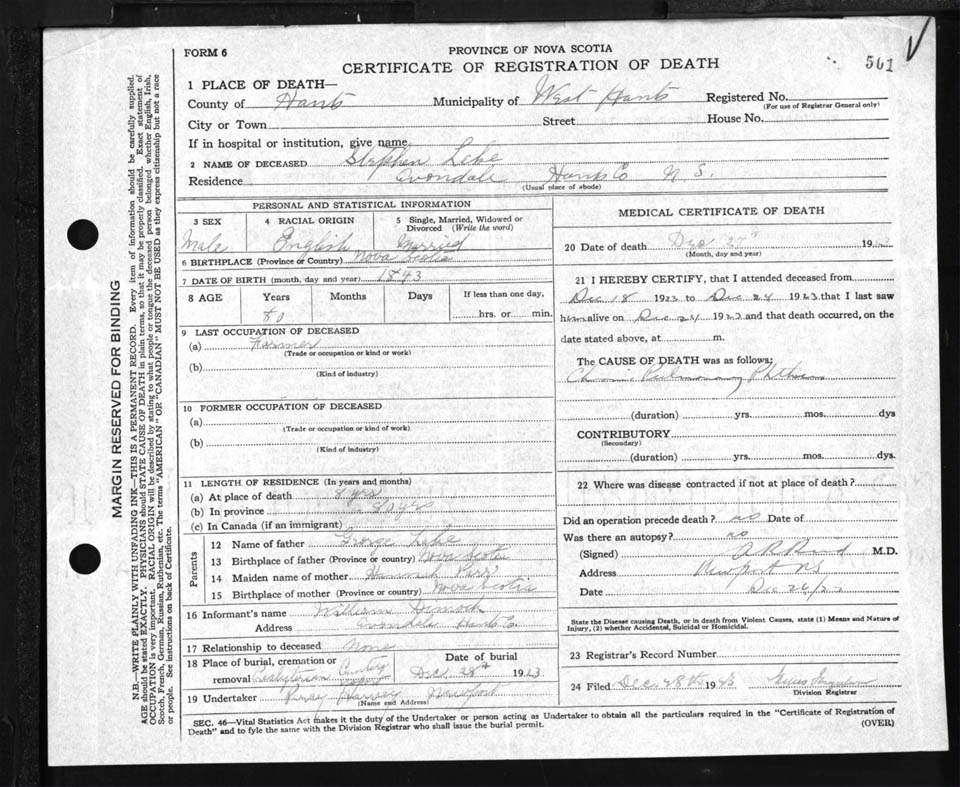 FORM 6
PROVINCE OF NOVA SCOTIA
501
CERTIFICATE OF REGISTRATION OF DEATH
1 PLACE OF DEATH—
County of Hants Municipality of West Hants Registered No.
(For use of Registrar General only)
City or Town Street House No.
If in hospital or institution, give name
2 NAME OF DECEASED Stephen Lake
Residence Avondale Hants Co N. S.
(Usual place of abode)
PERSONAL AND STATISTICAL INFORMATION
3 SEX 4 RACIAL ORIGIN 5 Single, Married, Widowed or Divorced (Write the word)
Male English Married
6 BIRTHPLACE (Province or Country) Nova Scotia
7 DATE OF BIRTH (month, day and year) 1843
8 AGE Years Months Days If less than one day,
80 hrs. or min.
9 LAST OCCUPATION OF DECEASED
(a) Farmer
(Trade or occupation or kind or work)
(b)
(Kind of industry)
10 FORMER OCCUPATION OF DECEASED
(a)
(Trade or occupation or kind of work)
(b)
(Kind of industry)
11 LENGTH OF RESIDENCE (In years and months)
(a) At place of death 8 yrs
(b) In province 80 yrs
(c) In Canada (if an immigrant)
Parents
12 Name of father George Lake
13 Birthplace of father (Province or country) Nova Scotia
14 Maiden name of mother Hannah Parr
15 Birthplace of mother (Province or country) Nova Scotia
16 Informant's name William Dimock
Address Avondale Hants Co.
17 Relationship to deceased None
18 Place of burial, cremation or Date of burial
removal Presbyterian Cemetery Dec 28th 1923
19 Undertaker Harvey
(Name and Address)
MEDICAL CERTIFICATE OF DEATH
20 Date of death Dec 192
(Month, day and year)
21 I HEREBY CERTIFY, that I attended deceased from
Dec 18 1923 to Dec 24 1923 that I last saw
him alive on Dec 24 1923 and that death occurred, on the
date stated above, at m.
The CAUSE OF DEATH was as follows:
Chronic Pulmonary Phthisis
(duration) yrs. mos. dys
CONTRIBUTORY
(Secondary)
(duration) yrs. mos. dys.
22 Where was disease contracted if not at place of death?
Did an operation precede death? no Date of
Was there an autopsy? no
(Signed) M.D.
Address Newport NS
Date Dec
State the Disease causing Death, or in death from Violent Causes, state (1) Means and Nature of Injury, (2) whether Accidental, Suicidal or Homicidal.
23 Registrar's Record Number
24 Filed Dec 28th 1923
Division Registrar
SEC. 46—Vital Statistics Act makes it the duty of the Undertaker or person acting as Undertaker to obtain all the particulars required in the "Certificate of Registration of
Death" and to fyle the same with the Division Registrar who shall issue the burial permit. (OVER)
MARGIN RESERVED FOR BINDING
N.B.—WRITE PLAINLY WITH UNFADING INK—THIS IS A PERMANENT RECORD. Every item of information should be carefully supplied.
AGE should be stated EXACTLY. PHYSICIANS should STATE CAUSE OF DEATH in plain terms, so that it may be properly classified. Exact statement of
OCCUPATION is very important. RACIAL ORIGIN will be described by stating to what people or tongue the deceased person belonged whether English, Irish,
Scotch, French, German, Russian, Ruthenian, etc. The terms "AMERICAN" OR "CANADIAN" MUST NOT BE USED as they express citizenship but not a race
or people. See instructions on back of Certificate.